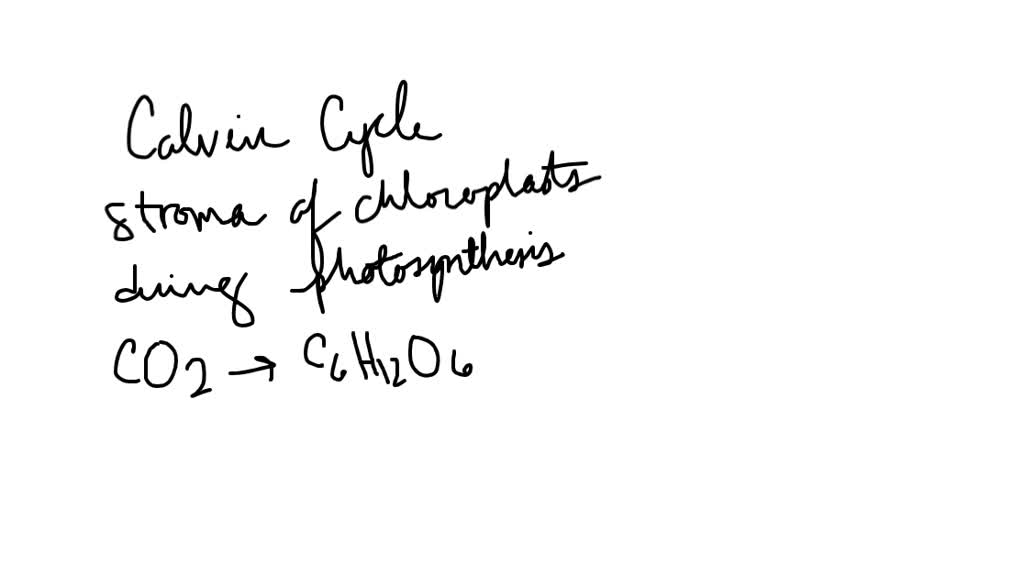 Calvin Cycle
stroma of chloroplasts
during photosynthesis
CO2 → C6H12O6